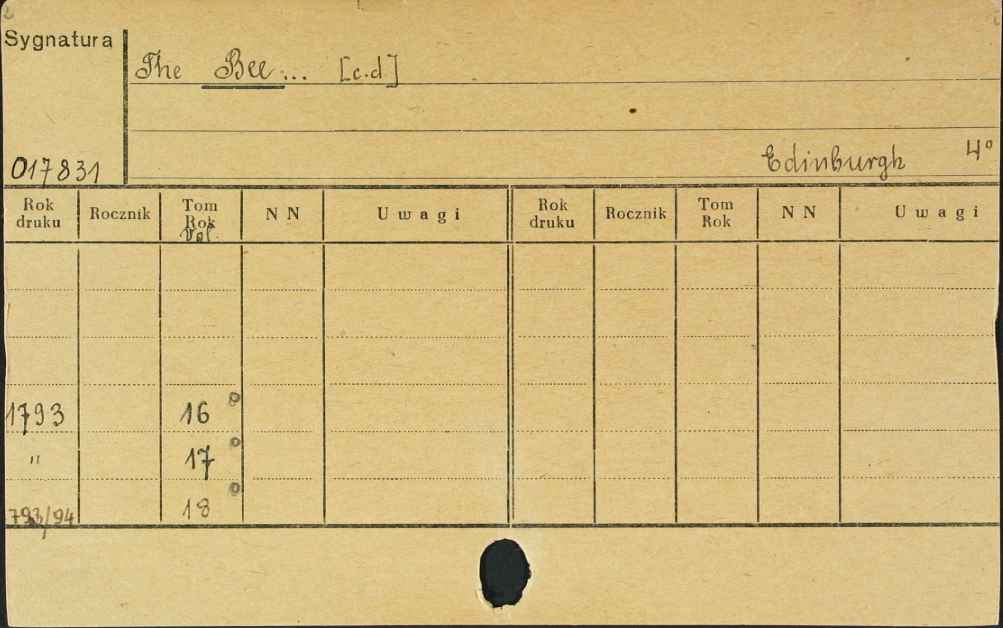 Sygnatura
The Bee... [c.d]
017831
Edinburgh 4°
Rok druku Rocznik Tom Rok Vol. NN Uwagi Rok druku Rocznik Tom Rok NN Uwagi
1793 16
" 17
793/94 18